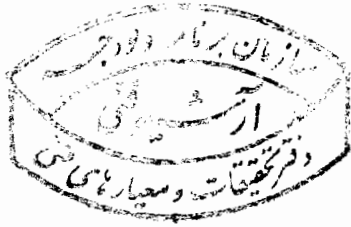 سازمان برنامه و بودجه
آرشیو فنی
دفتر تحقیقات و معیارهای فنی